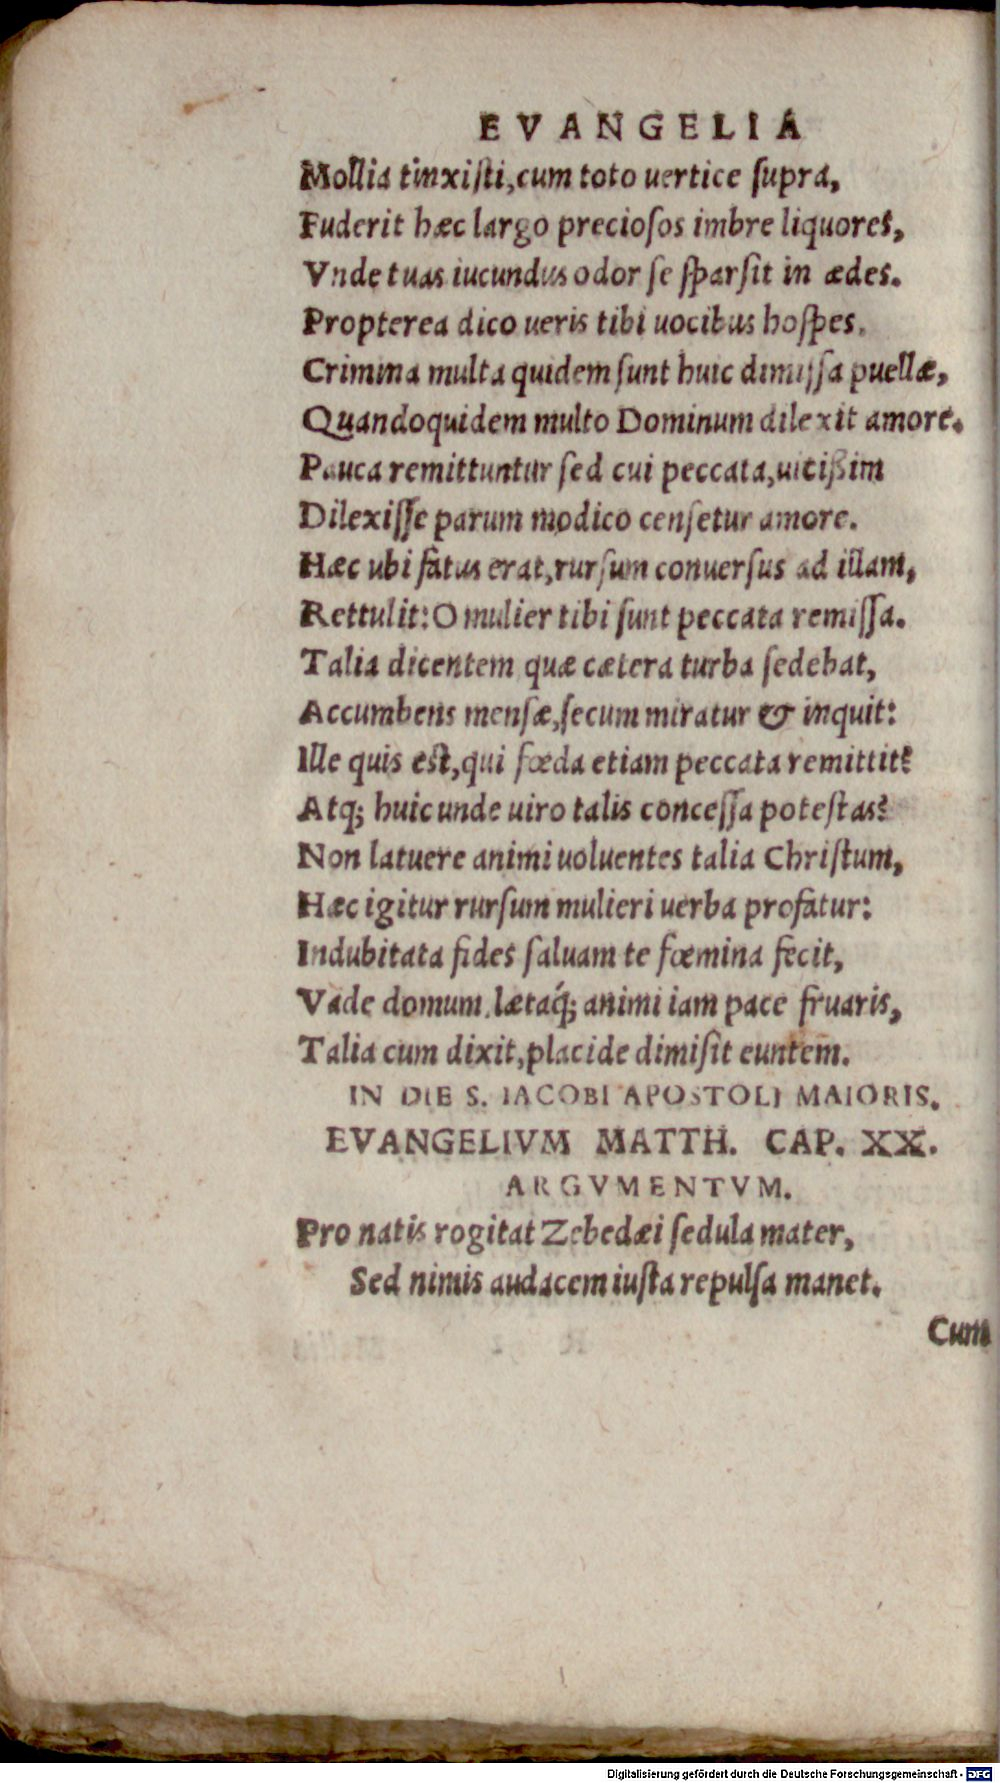 EVANGELIA
Mollia tinxiſti, cum toto uertice ſupra,
Fuderit hæc largo precioſos imbre liquores,
Vnde tuas iucundus odor ſe ſparſit in ædes.
Propterea dico ueris tibi uocibus hoſpes.
Crimina multa quidem ſunt huic dimiſſa puellæ,
Quandoquidem multo Dominum dilexit amore.
Pauca remittuntur ſed cui peccata, uicißim
Dilexiſſe parum modico cenſetur amore.
Hæc ubi fatus erat, rurſum conuerſus ad illam,
Rettulit: O mulier tibi ſunt peccata remiſſa.
Talia dicentem quæ cætera turba ſedebat,
Accumbens menſæ, ſecum miratur & inquit:
Ille quis eſt, qui fœda etiam peccata remittit?
Atq; huic unde uiro talis conceſſa poteſtas?
Non latuere animi uoluentes talia Chriſtum,
Hæc igitur rurſum mulieri uerba profatur:
Indubitata fides ſaluam te fœmina fecit,
Vade domum, lætaq́; animi iam pace fruaris,
Talia cum dixit, placide dimiſit euntem.
IN DIE S. IACOBI APOSTOLI MAIORIS.
EVANGELIVM MATTH. CAP. XX.
ARGVMENTVM.
Pro natis rogitat Zebedæi ſedula mater,
Sed nimis audacem iuſta repulſa manet.
Cum
Digitalisierung gefördert durch die Deutsche Forschungsgemeinschaft - DFG